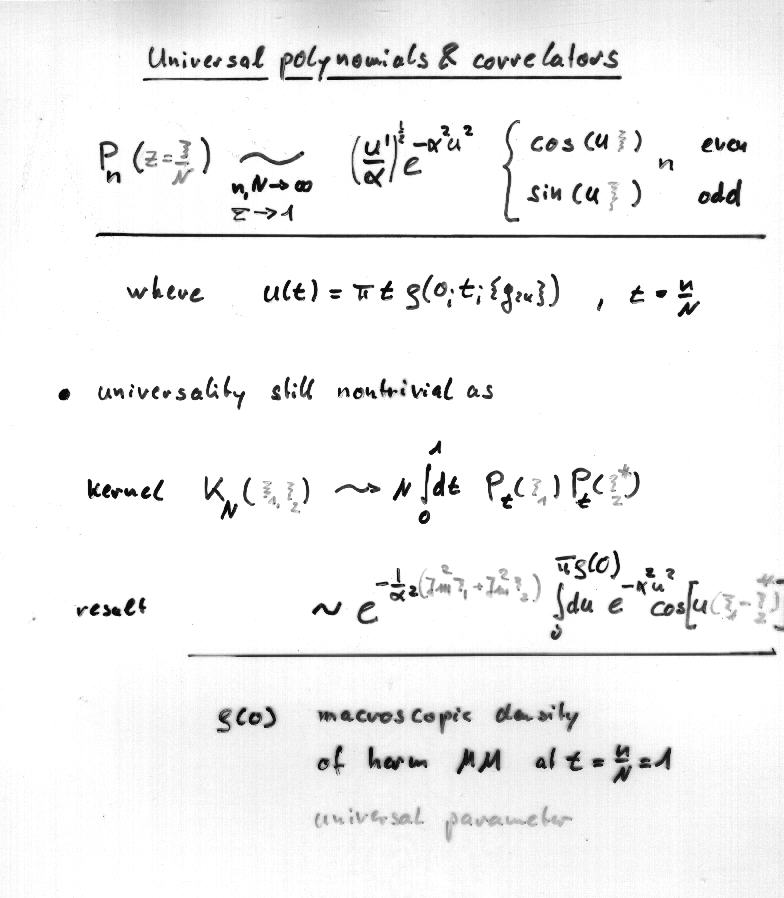 Universal polynomials & correlators
P_n (z = ξ/N) ~ (u'/α)^{1/2} e^{-α²u²} { cos(u ξ) n even
n, N → ∞ sin(u ξ) odd
τ → 1
where u(t) = π t ρ(0; t; {g_{2k}}) , t = n/N
• universality still nontrivial as
kernel K_N(ξ_1, ξ_2) ~> N ∫_0^1 dt P_t(ξ_1) P_t(ξ_2^*)
result ~ e^{-1/α² (Im²ξ_1 + Im²ξ_2)} ∫_0^{πρ(0)} du e^{-α²u²} cos[u(ξ_1 - ξ_2^*)]
ρ(0) macroscopic density
of herm MM at t = n/N = 1
universal parameter